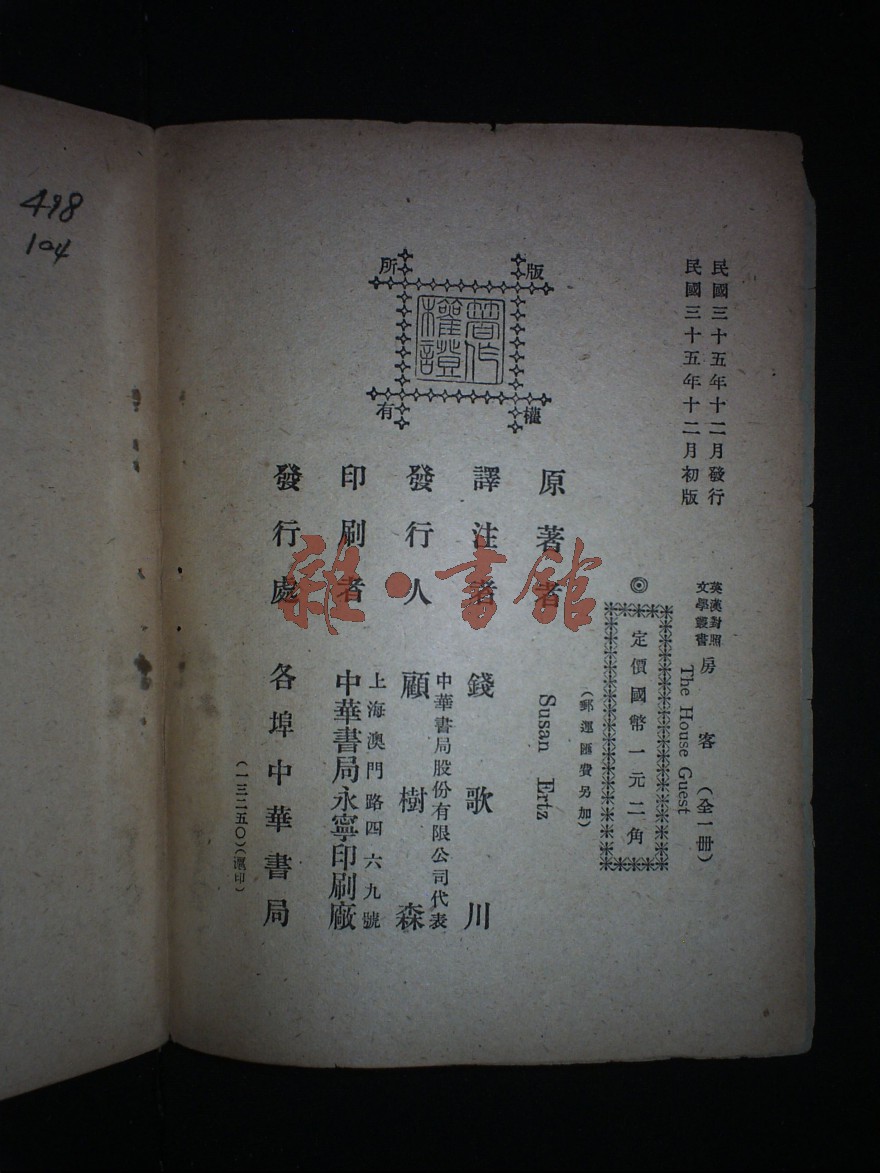 民國三十五年十二月發行
民國三十五年十二月初版
英漢對照
文學叢書
房客(全一册)
The House Guest
◎定價國幣一元二角
(郵運匯費另加)
原著者 Susan Ertz
譯注者 錢歌川
發行人 中華書局股份有限公司代表
顧樹森
印刷者 上海澳門路四六九號
中華書局永寧印刷廠
發行處 各埠中華書局
(一三二五〇)(滬印)
版權所有
著作權證
雜·書館
498
104